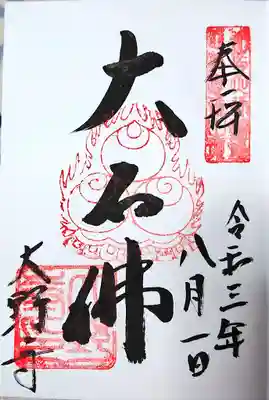 奉拝
令和三年
八月一日
大石佛
大野寺